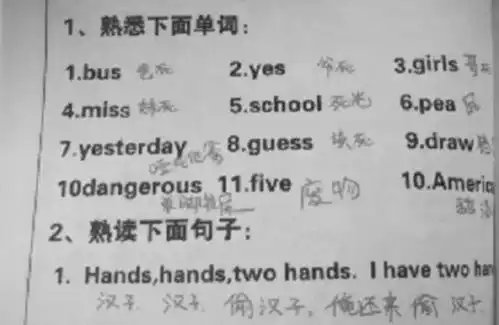 1、熟悉下面单词：
1.bus 爸死 2.yes 爷死 3.girls 哥死
4.miss 妹死 5.school 死光 6.pea 屁
7.yesterday 8.guess 死 9.draw
10dangerous 11.five 废物 10.Americ
2、熟读下面句子：
1. Hands,hands,two hands. I have two han
汉子 汉子 偷汉子。俺还来偷 汉子